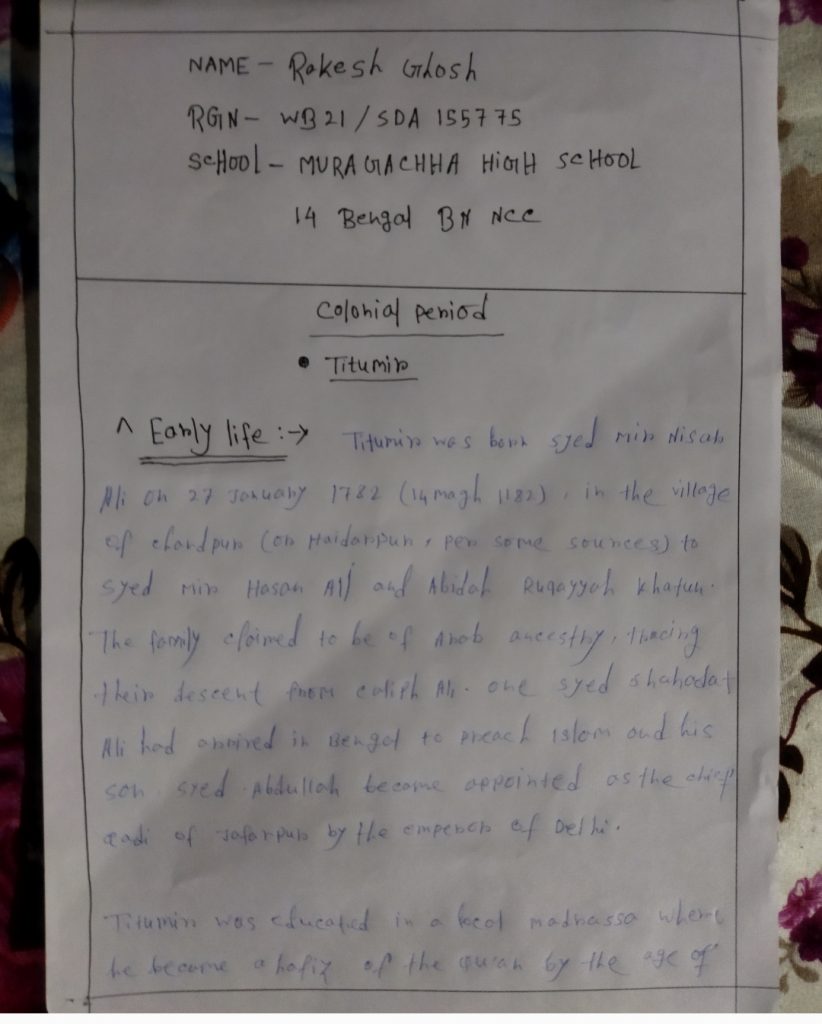 NAME - Rakesh Ghosh
RGN- WB21/SDA 155775
SCHOOL - MURAGACHHA HIGH SCHOOL
14 Bengal BN NCC
Colonial period
• Titumir
^ Early life :→ Titumir was born syed mir Nisar
Ali on 27 January 1782 (14 magh 1182), in the village
of chandpur (or Haidarpur, per some sources) to
syed mir Hasan Ali and Abidah Ruqayyah khatun.
The family claimed to be of Arab ancestry, tracing
their descent from caliph Ali. one syed shahadat
Ali had arrived in Bengal to preach Islam and his
son, syed Abdullah became appointed as the chief
qadi of Jafarpur by the emperor of Delhi.
Titumir was educated in a local madrassa where
he became a hafiz of the quran by the age of